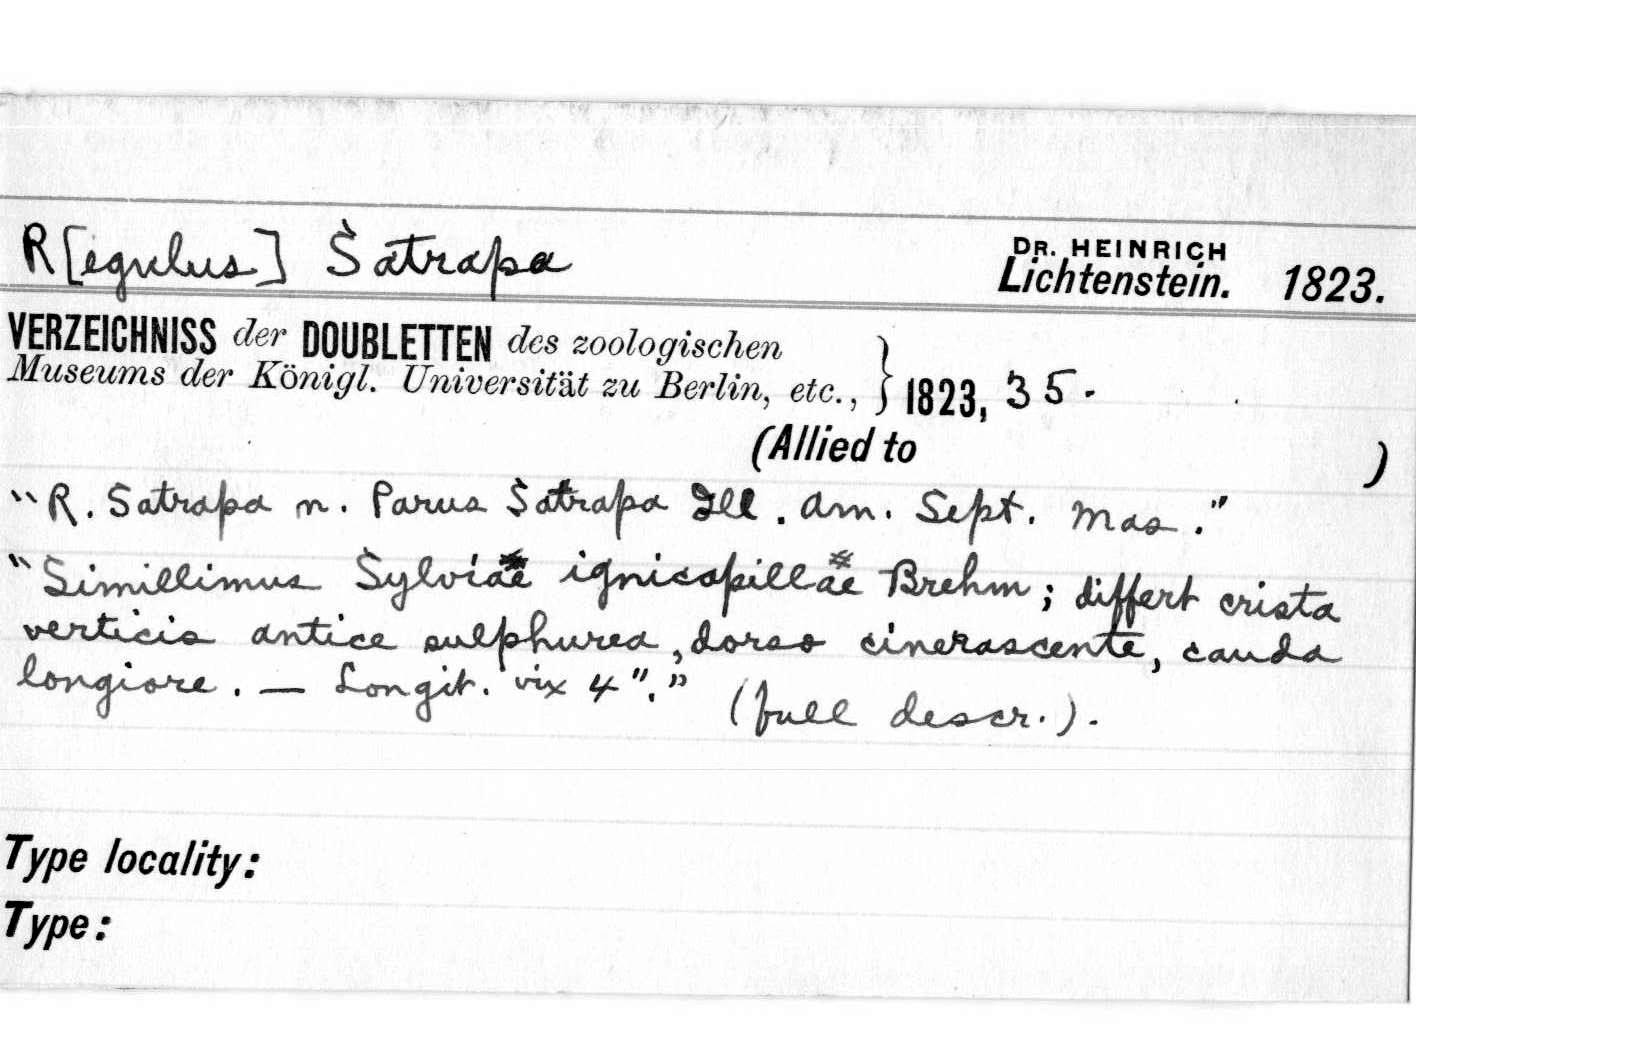 R[egulus] Satrapa DR. HEINRICH Lichtenstein. 1823.
VERZEICHNISS der DOUBLETTEN des zoologischen
Museums der Königl. Universität zu Berlin, etc., } 1823, 35.
(Allied to )
"R. Satrapa n. Parus Satrapa Ill. Am. Sept. Mas."
"Simillimus Sylviae ignicapillae Brehm; differt crista
verticis antice sulphurea, dorso cinerascente, cauda
longiore. — Longit. vix 4"." (full descr.).
Type locality:
Type: